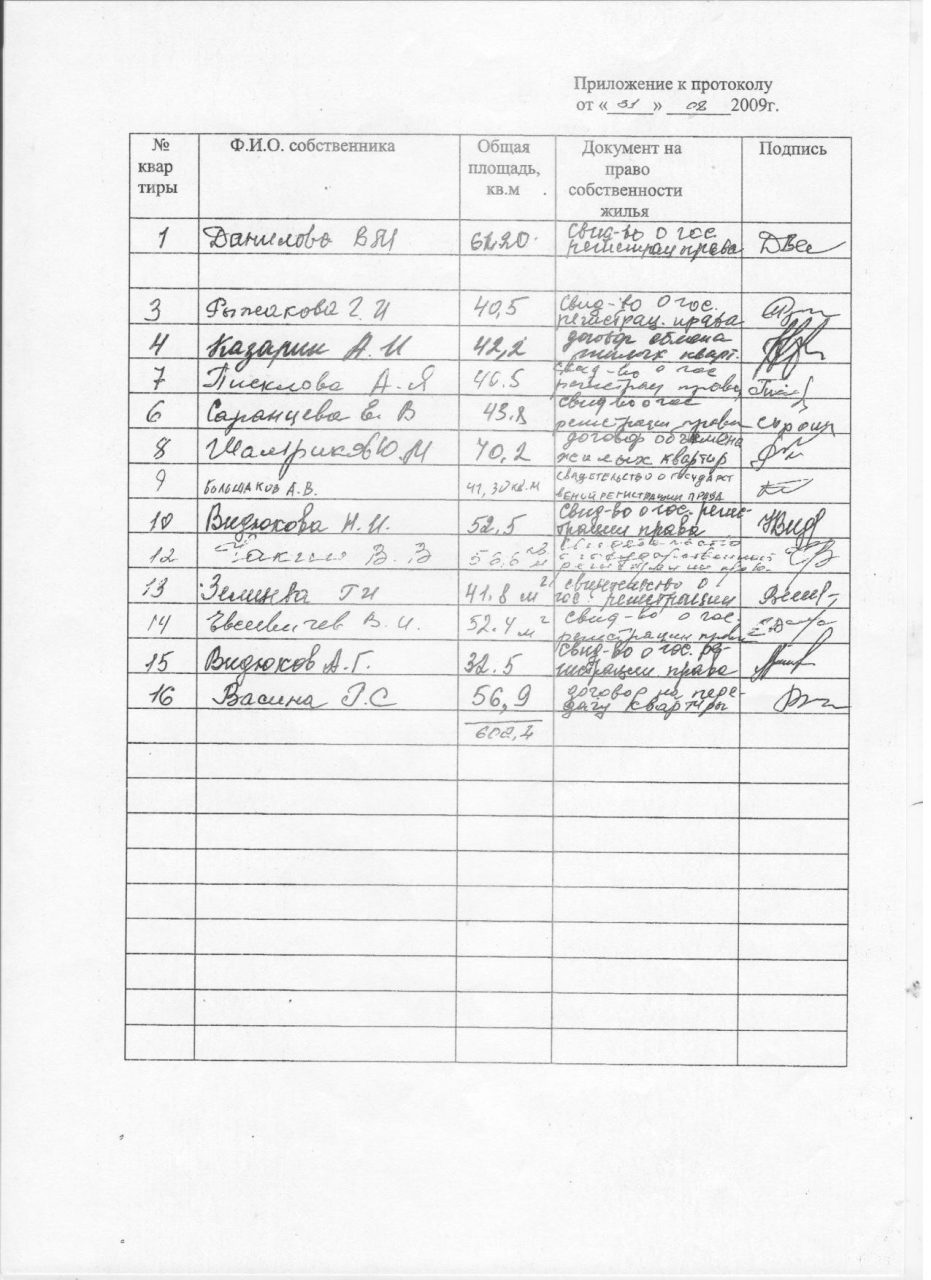 Приложение к протоколу
от «31» 08 2009г.
№ квар тиры Ф.И.О. собственника Общая площадь, кв.м Документ на право собственности жилья Подпись
1 Данилова В М 61.20 свид-во о гос. регистрац права
3 Рыжакова Г. И 40,5 свид-во о гос. регистрац. права
4 Казарин А. И 42,2 договор обмена жилых кварт.
7 Пискилова А. Я 40.5 свид-во о гос регистрац права
6 Саранцева Е. В 43.8 свид-во о гос регистрации права
8 Ю. М 70,2 договор обмена жилых квартир
9 БОЛЬШАКОВ А.В. 41,30 кв.м СВИДЕТЕЛЬСТВО О ГОСУДАРСТ ВЕНОЙ РЕГИСТРАЦИИ ПРАВА
10 Видюкова Н. И. 52,5 свид-во о гос. реги- страции права НВид
12 В. З 56,6 м2 свидетельство о государственной регистрации права
13 Г И 41.8 м2 о гос регистрации
14 В. И. 52.4 м2 свид-во о гос. регистрации права
15 Видюков А. Г. 32.5 свид-во о гос. ре- гистрации права
16 Васина Г. С 56,9 договор на пере- дачу квартиры
602,4